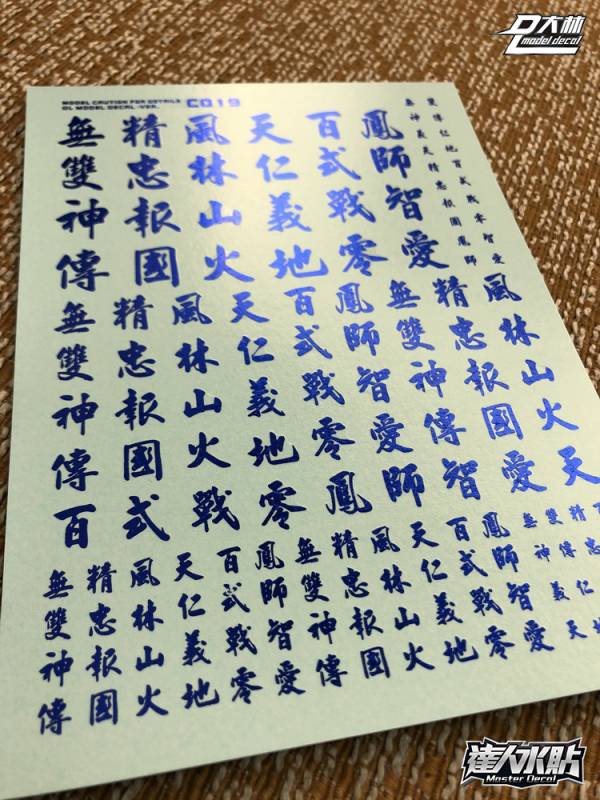 D大林
DL model decal
MODEL CAUTION FOR DETAILS
DL MODEL DECAL -VER.
CO19
無雙神傳
精忠報國
風林山火
天仁義地
百式戰零
鳳師智愛
雙傳仁地百式戰零智愛
無神義天精忠報國鳳師
無雙神傳
精忠報國
風林山火
天仁義地
百式戰零
鳳師智愛
無雙神傳
精忠報國
風林山火
百式戰零鳳師智愛天
無雙神傳
精忠報國
風林山火
天仁義地
百式戰零
鳳師智愛
無雙神傳
精忠報國
風林山火
天仁義地
百式戰零
鳳師智愛
無雙精
神傳忠
義仁
天
達人水貼
Master Decal